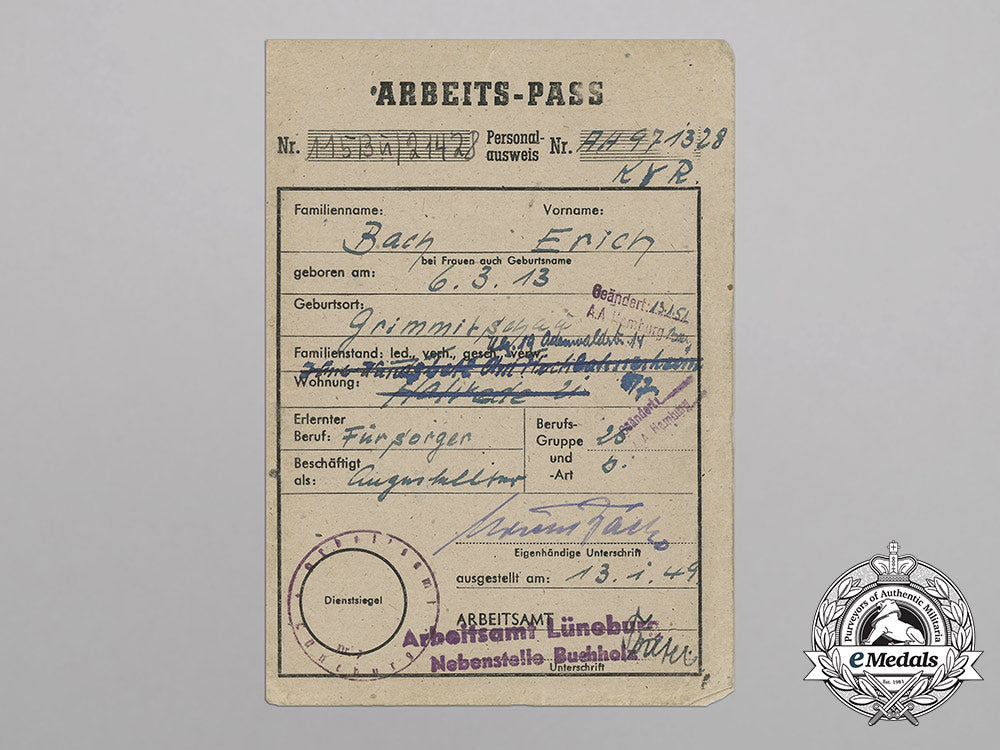 ARBEITS-PASS
Nr. 115Bü/21428 Personal-ausweis Nr. AA 971328
KVR.
Familienname: Vorname:
Bach Erich
bei Frauen auch Geburtsname
geboren am: 6.3.13
Geburtsort:
Geändert: 13.1.51
A.A. Hamburg
Odenwaldstr. 14
Familienstand: led., verh., gesch., verw.
Wohnung:
Geändert!
A. Hamburg
Erlernter Beruf: Fürsorger
Berufs-Gruppe und -Art 25 b.
Beschäftigt als: Angestellter
Eigenhändige Unterschrift
ausgestellt am: 13.1.49
Dienstsiegel
Arbeitsamt Lüneburg
ARBEITSAMT
Arbeitsamt Lüneburg
Nebenstelle Buchholz
Unterschrift
Purveyors of Authentic Militaria
eMedals
Est. 1981